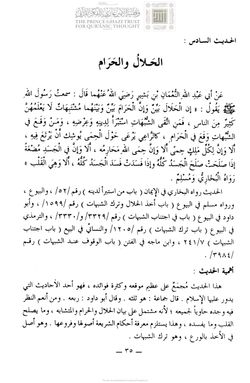 وقفية الأمير غازي للفكر القرآني
THE PRINCE GHAZI TRUST
FOR QUR'ANIC THOUGHT
الحديث السادس :
الحَلالُ والحَرَام
عَنْ أَبِي عَبْدِ اللهِ النُّعْمَانِ بْنِ بَشِيرٍ رَضِيَ اللهُ عَنْهُمَا قَالَ : سَمِعْتُ رَسُولَ اللهِ
ﷺ يَقُولُ : « إِنَّ الحَلَالَ بَيِّنٌ وَإِنَّ الحَرَامَ بَيِّنٌ وَبَيْنَهُمَا مُشْتَبِهَاتٌ لَا يَعْلَمُهُنَّ
كَثِيرٌ مِنَ النَّاسِ ، فَمَنِ اتَّقَى الشُّبُهَاتِ اسْتَبْرَأَ لِدِينِهِ وَعِرْضِهِ ، وَمَنْ وَقَعَ فِي
الشُّبُهَاتِ وَقَعَ فِي الحَرَامِ ، كَالرَّاعِي يَرْعَى حَوْلَ الحِمَى يُوشِكُ أَنْ يَرْتَعَ فِيهِ ،
أَلَا وَإِنَّ لِكُلِّ مَلِكٍ حِمًى أَلَا وَإِنَّ حِمَى اللهِ مَحَارِمُهُ ، أَلَا وَإِنَّ فِي الجَسَدِ مُضْغَةً
إِذَا صَلَحَتْ صَلَحَ الجَسَدُ كُلُّهُ وَإِذَا فَسَدَتْ فَسَدَ الجَسَدُ كُلُّهُ ، أَلَا وَهِيَ القَلْبُ »
رَوَاهُ الْبُخَارِيُّ وَمُسْلِمٌ .
الحديث رواه البخاري في الإيمان ( باب من استبرأ لدينه ) رقم /٥٢/ ، والبيوع ،
ورواه مسلم في البيوع ( باب أخذ الحلال وترك الشبهات ) رقم /١٥٩٩/ ، وأبو
داود في البيوع ( باب في اجتناب الشبهات ) رقم /٣٣٢٩/ و/٣٣٣٠/ ، والترمذي
في البيوع ( باب في ترك الشبهات ) رقم /١٢٠٥/ والنسائي في البيوع ( باب اجتناب
الشبهات ) ٢٤١/٧ ، وابن ماجه في الفتن ( باب الوقوف عند الشبهات ) رقم
/٣٩٨٤/ .
أهمية الحديث :
هذا الحديث مُجمَعٌ على عظيم موقعه وكثرة فوائده ، فهو أحد الأحاديث التي
يدور عليها الإسلام . قال جماعة : هو ثلثه . وقال أبو داود : ربعه . ومن أنعم النظر
فيه وجده حاوياً لجميعه ؛ لأنه مشتمل على بيان الحلال والحرام والمتشابه ، وما يصلح
القلب وما يفسده ، وهذا يستلزم معرفة أحكام الشريعة أصولها وفروعها . وهو أصل
في الأخذ بالورع ، وهو ترك الشبهات .
— ٣٥ —